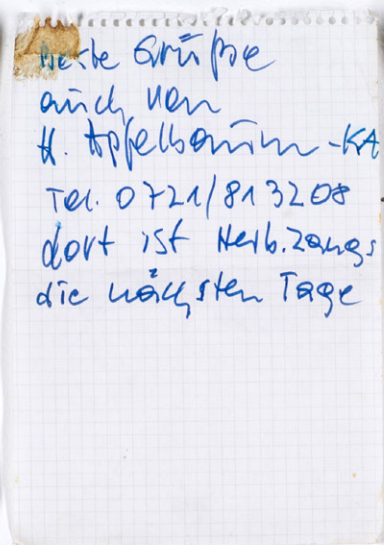 Beste Grüße
auch von
H. Apfelbaum-KA
Tel. 0721/813208
dort ist Herb. Zangs
die nächsten Tage